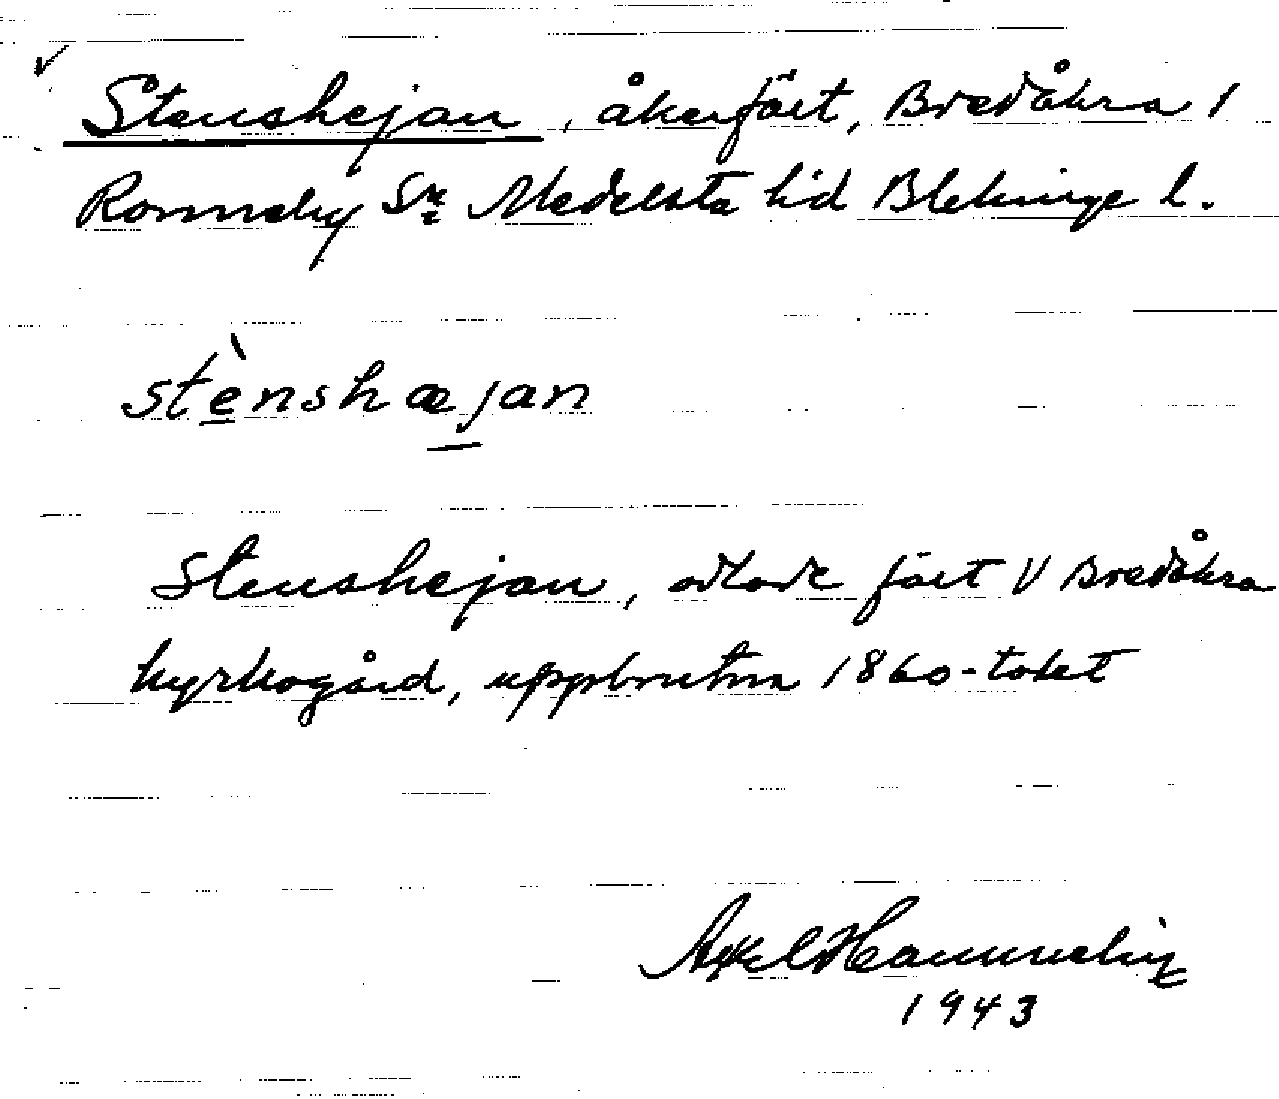 Stenshejan, åkerfält, Bredåkra 1
Ronneby Sn Medelsta hd Blekinge l.
stènshæjan
Stenshejan, odlade fält V Bredåkra
kyrkogård, uppbrutna 1860-talet
Axel
1943